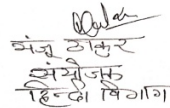 मंजू ठाकुर
संयोजक
हिन्दी विभाग